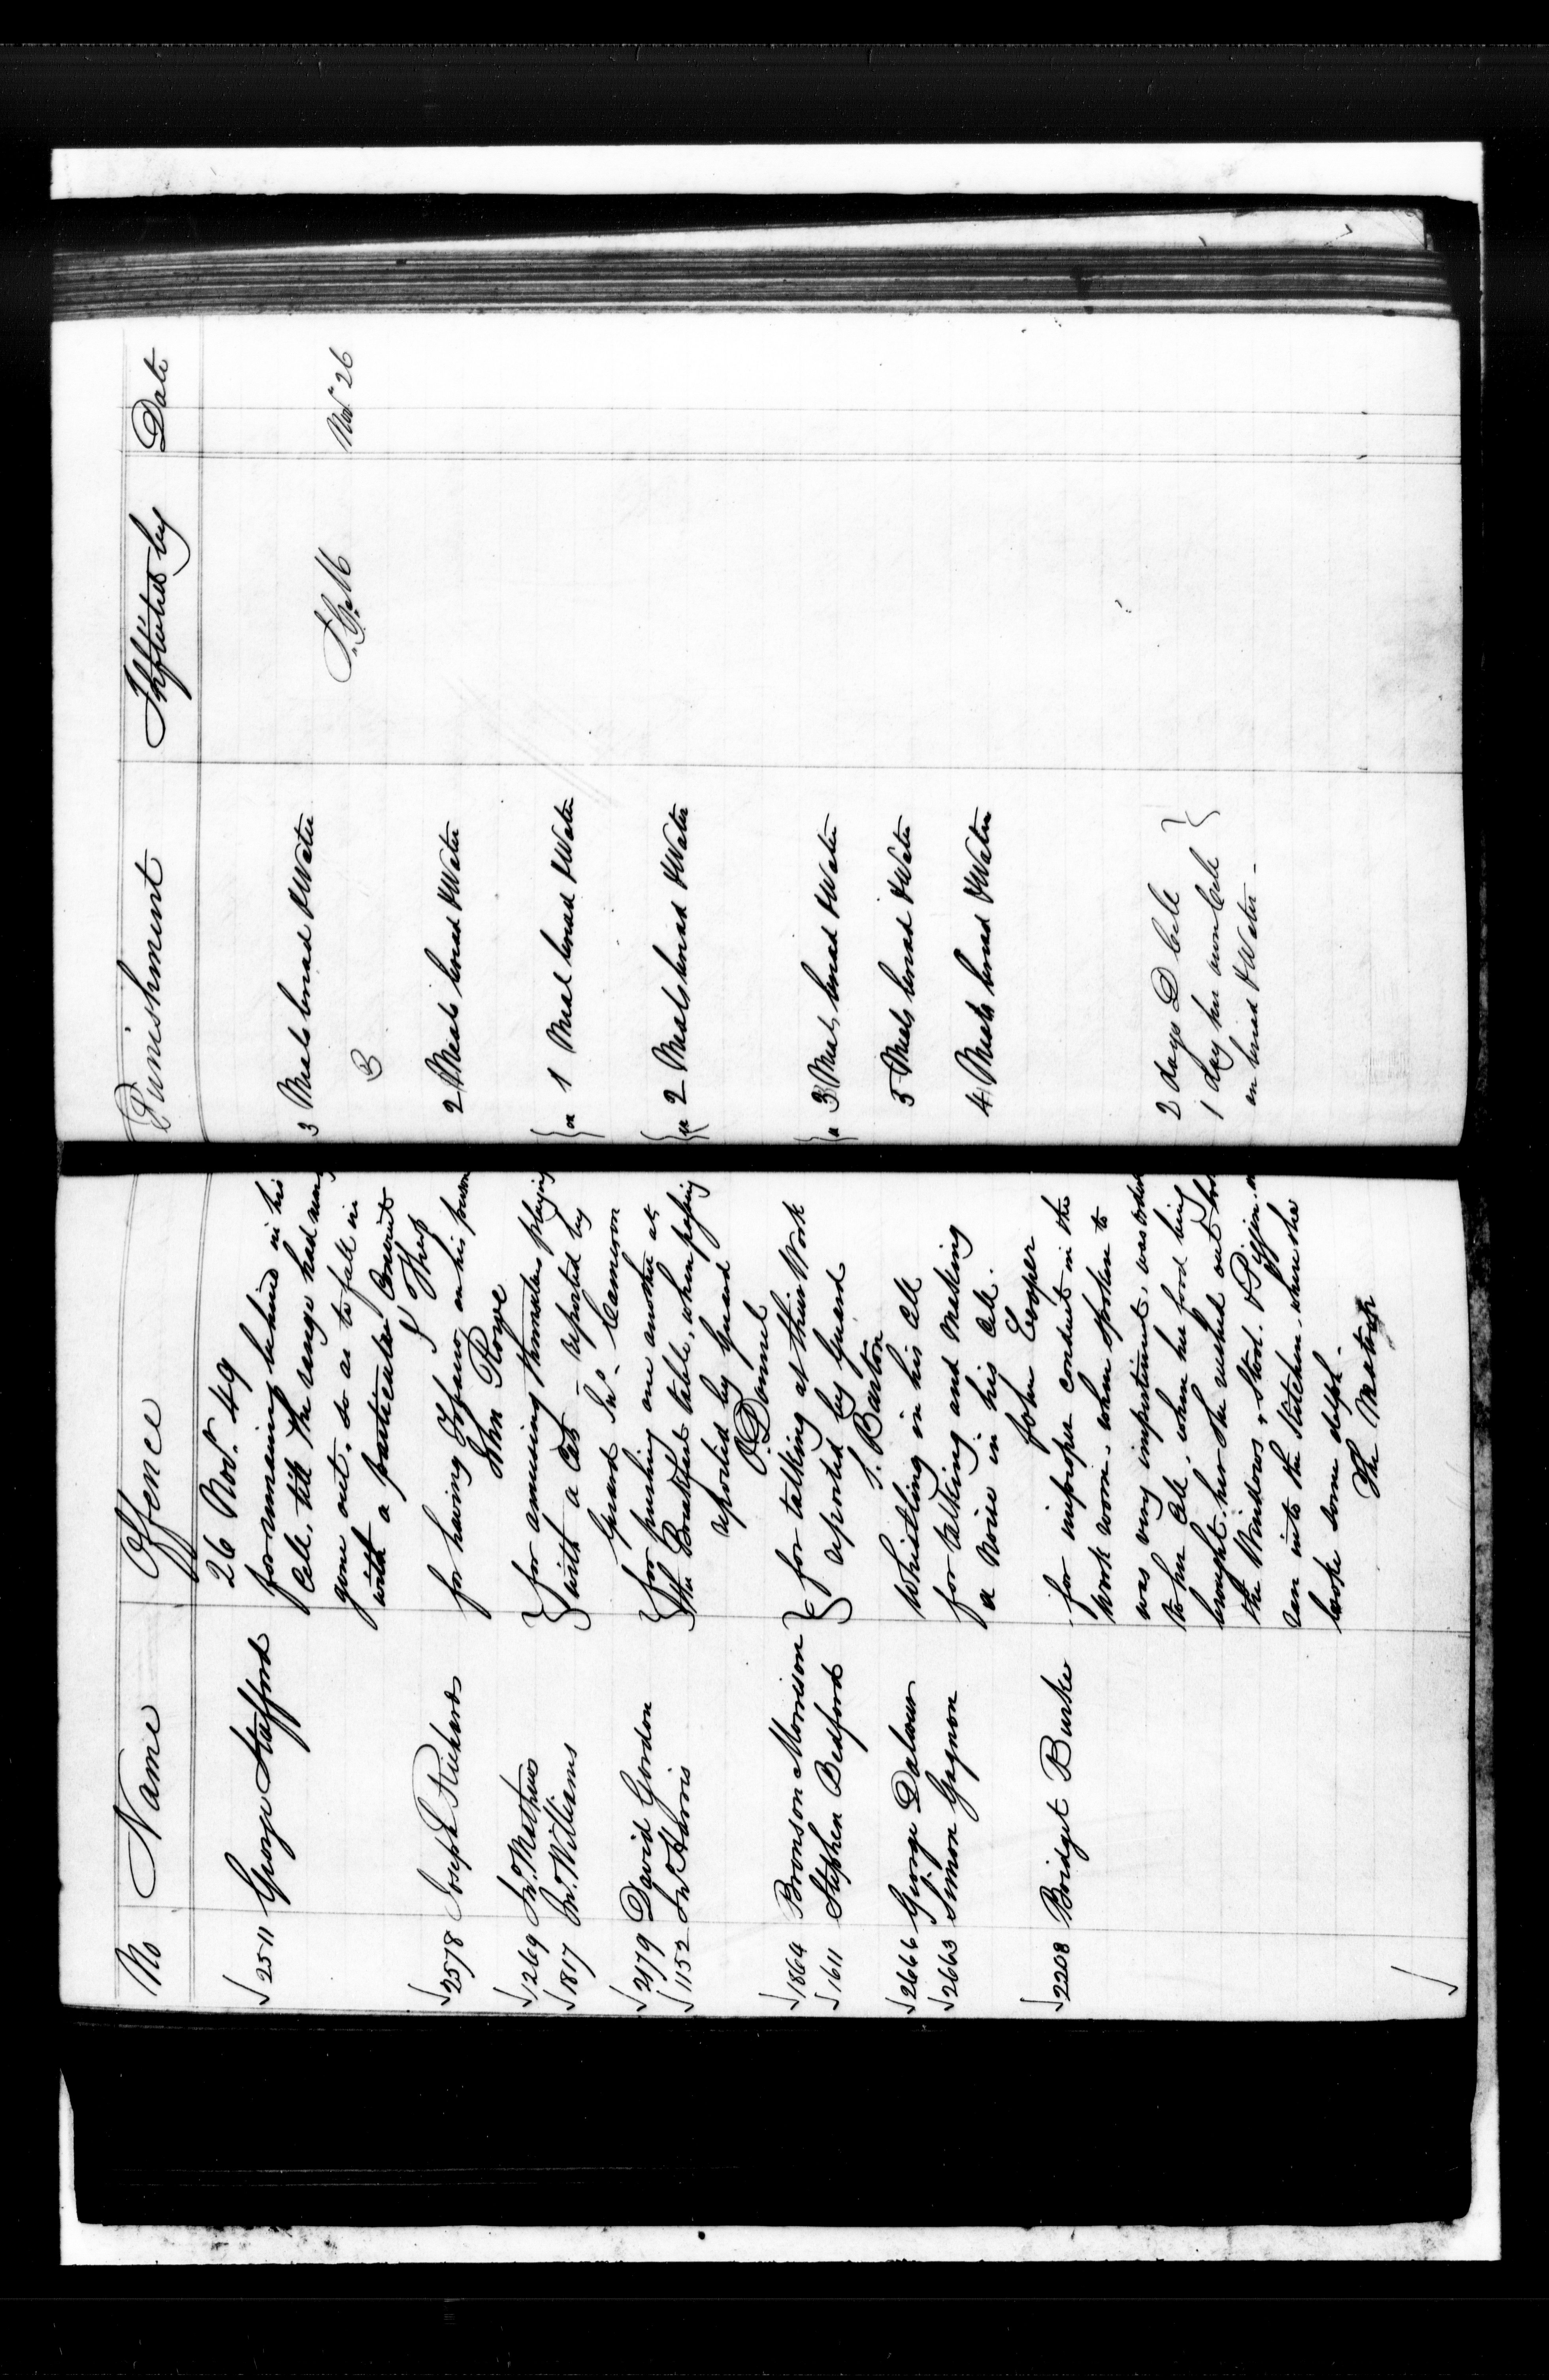 No Name Offence Punishment Inflicted by Date
26 Novr. 49
√ 2511 George Stafford for remaining behind in his 3 Meals bread & Water
Cell, till the range had
gone out, so as to fall in T.G.M Novr 26
with a particular Convict
√ 2578 Joseph Richards for having Tobacco on his person 2 Meals bread & Water
John Rowe
√ 1269 Jno. Mathews } for amusing themselves playing } ea 1 Meal bread & Water
√ 1817 Wm. Williams } with a Cat - reported by
Guard Jno. Cameron
√ 2179 David Gordon } for pushing one another at } ea 2 Meals bread & Water
√ 1152 Jno Harris } the Breakfast table, when passing
reported by Guard
O.Donnel
√ 1864 Bronson Morrison } for talking at their Work } ea 3 Meals bread & Water
√ 1611 Stephen Bedford } reported by Guard
S. Barton
√ 2666 George Whistling in his Cell 5 Meals bread & Water
√ 2663 Simon Gagnon for talking and Making 4 Meals bread & Water
a Noise in his Cell.
John Cooper
√ 2208 Bridget Burke for improper conduct in the
Work room. when spoken to
was very impertinent, was ordered 2 days D Cell }
to her Cell, when her food being 1 day her own Cell }
brought her she rushed out broke on bread & Water -
the Windows, & Stool.
ran into the Kitchen. where she
broke some delph.
The Matron
√